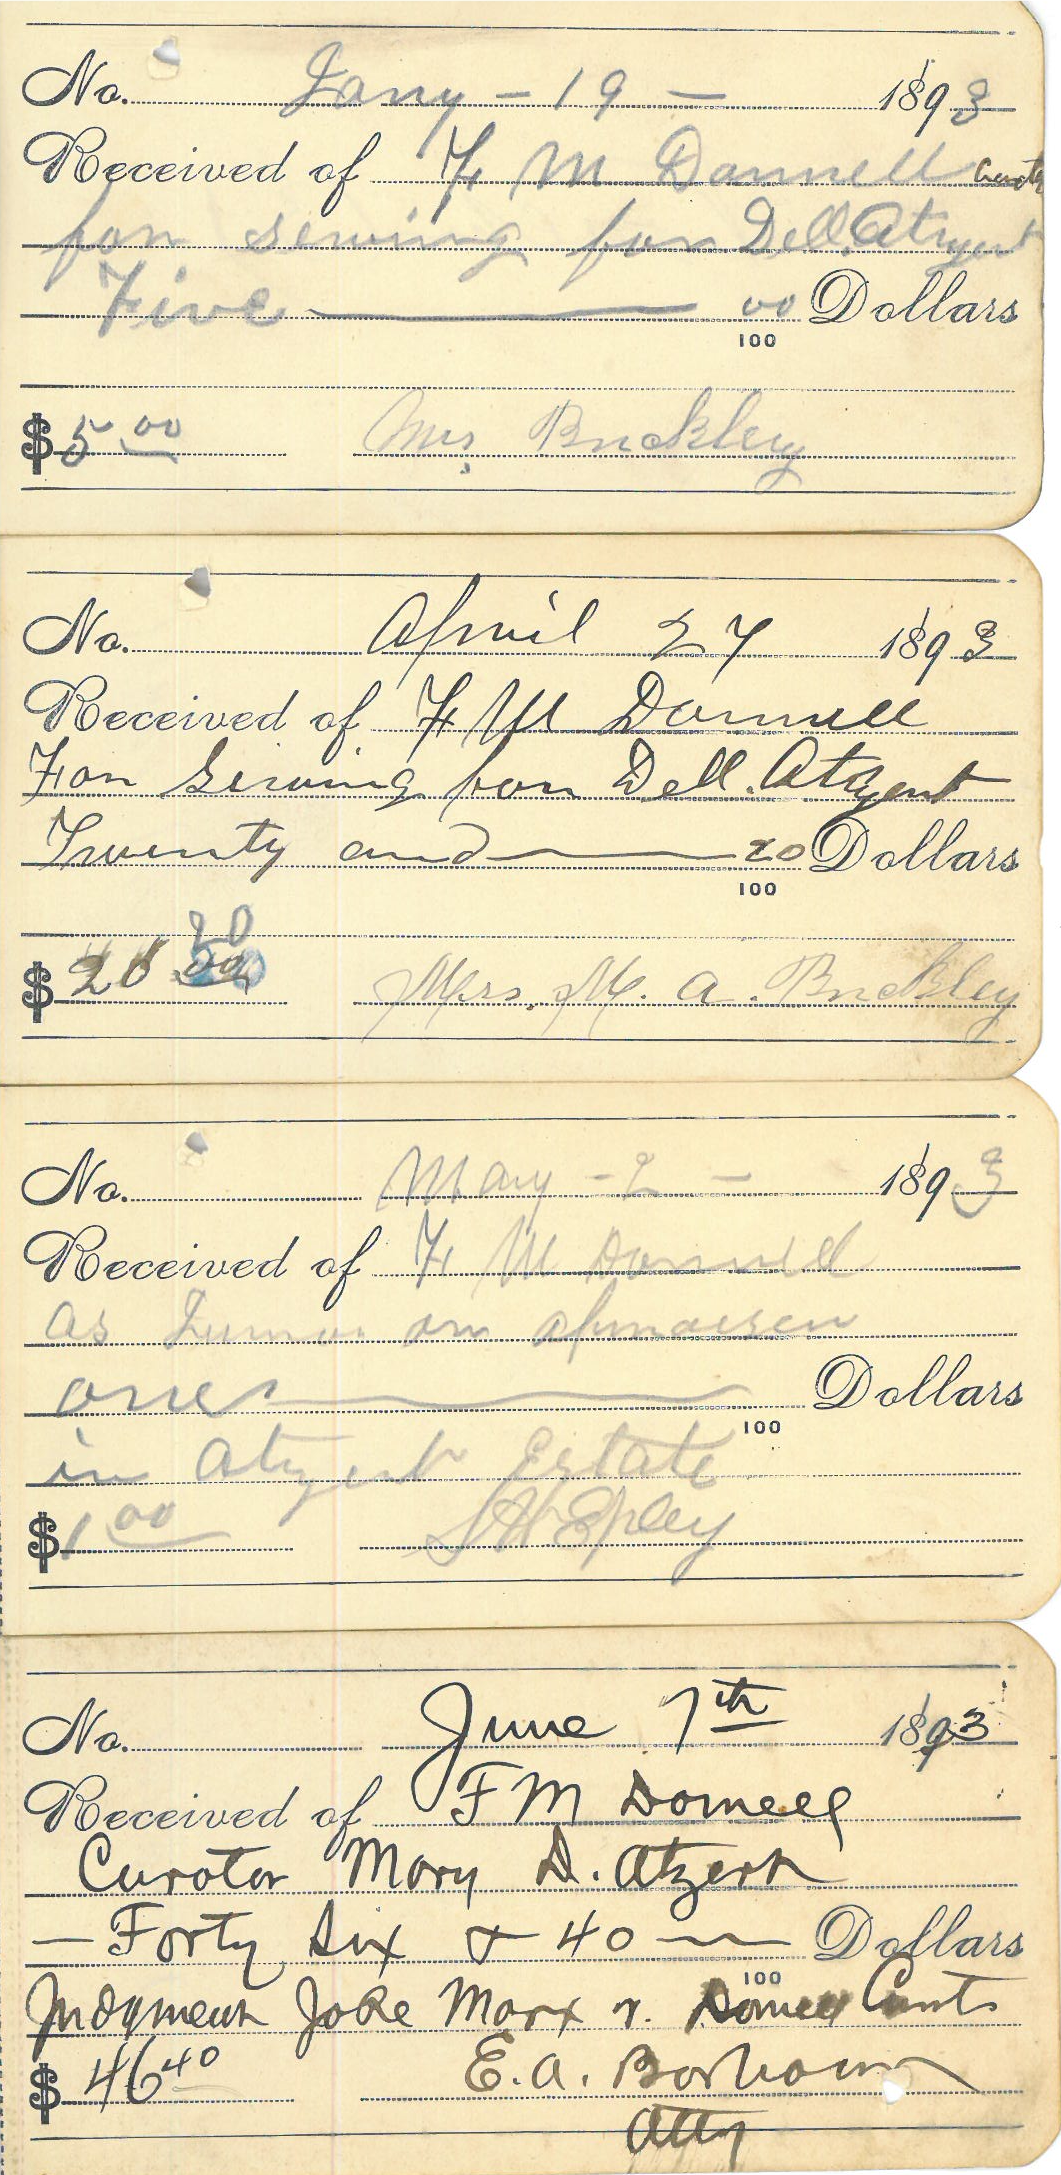 No. Jany - 19 - 1893
Received of F M Donnell
for sewing for Dell. Atzert
Five 00 Dollars
100
$ 5 00 Mrs. Buckley
No. April 27 1893
Received of F M Donnell
For Sewing for Dell. Atzert
Twenty and 20 Dollars
100
20
$ 20 Mrs. M. A. Buckley
No. May - 2 - 1893
Received of F M Donnell
as Juror on
one Dollars
100
in Atzert Estate
$ 1 00 S H Epley
No. June 7th 1893
Received of F M Donnell
Curator Mary D. Atzert
Forty Six & 40 Dollars
100
Judgment Jake Marx v. Donnell
$ 46 40 E. A.
Atty